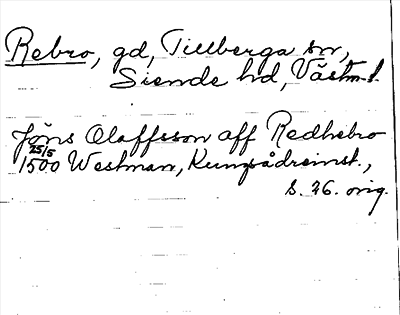 Rebro, gd, Tillberga sn,
Siende hd, Västm.l.
Jöns Olaffsson aff Redhebro
25/5
1500 Westman, Kungsådreinst.,
s. 26. orig.